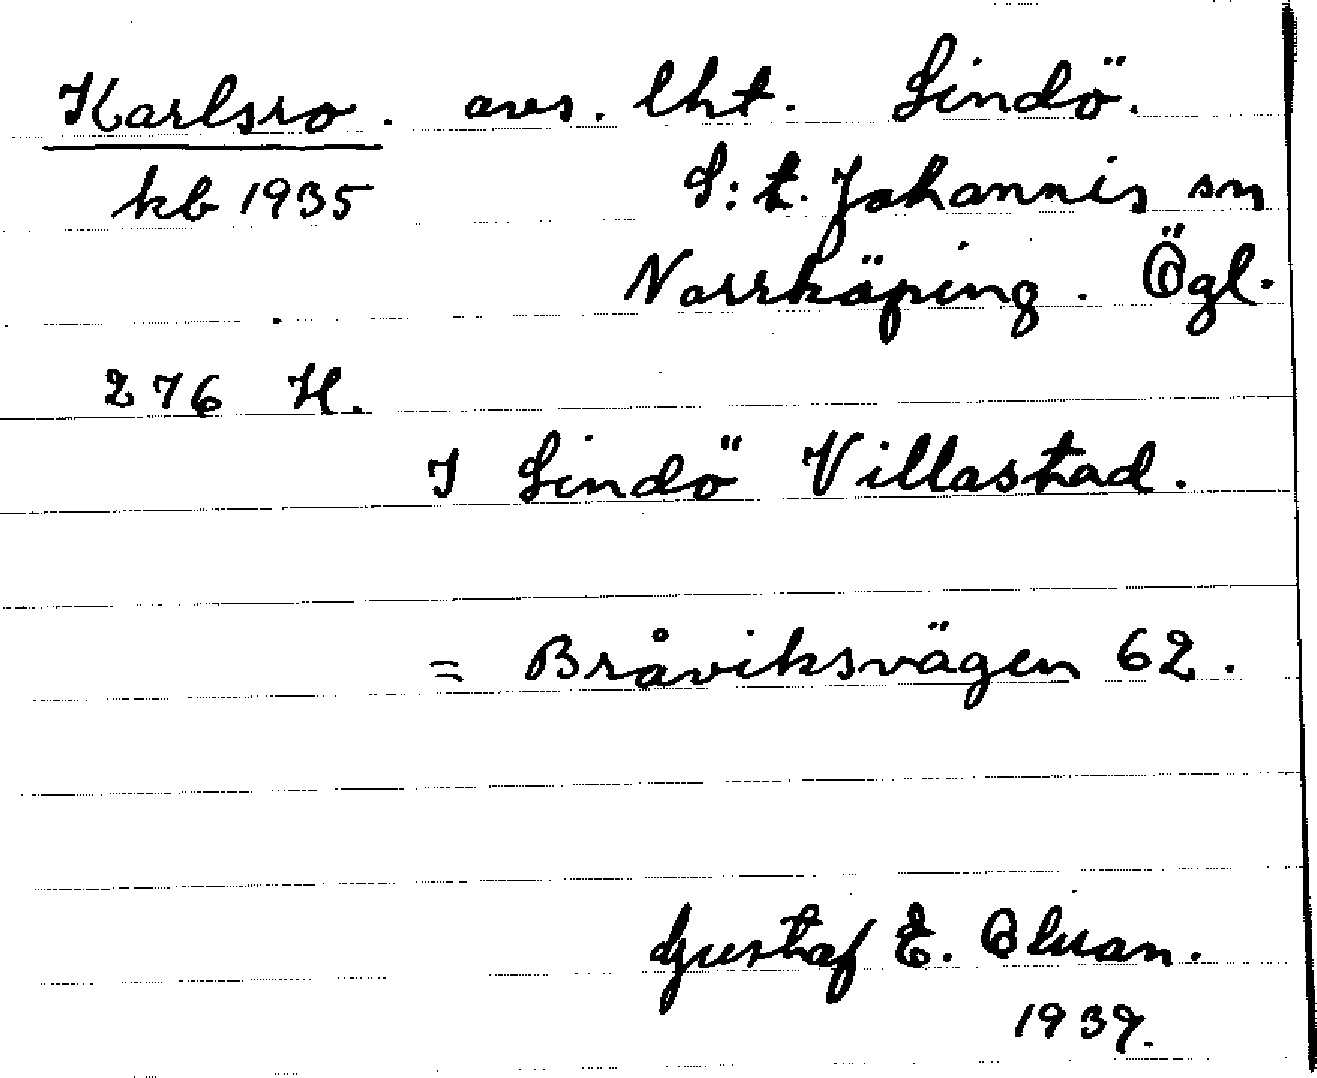 Karlsro. avs. lht. Lindö.
kb 1935 S:t. Johannis sn
Norrköping. Ögl.
276 H.
I Lindö Villastad.
= Bråviksvägen 62.
Gustaf E.
1939.